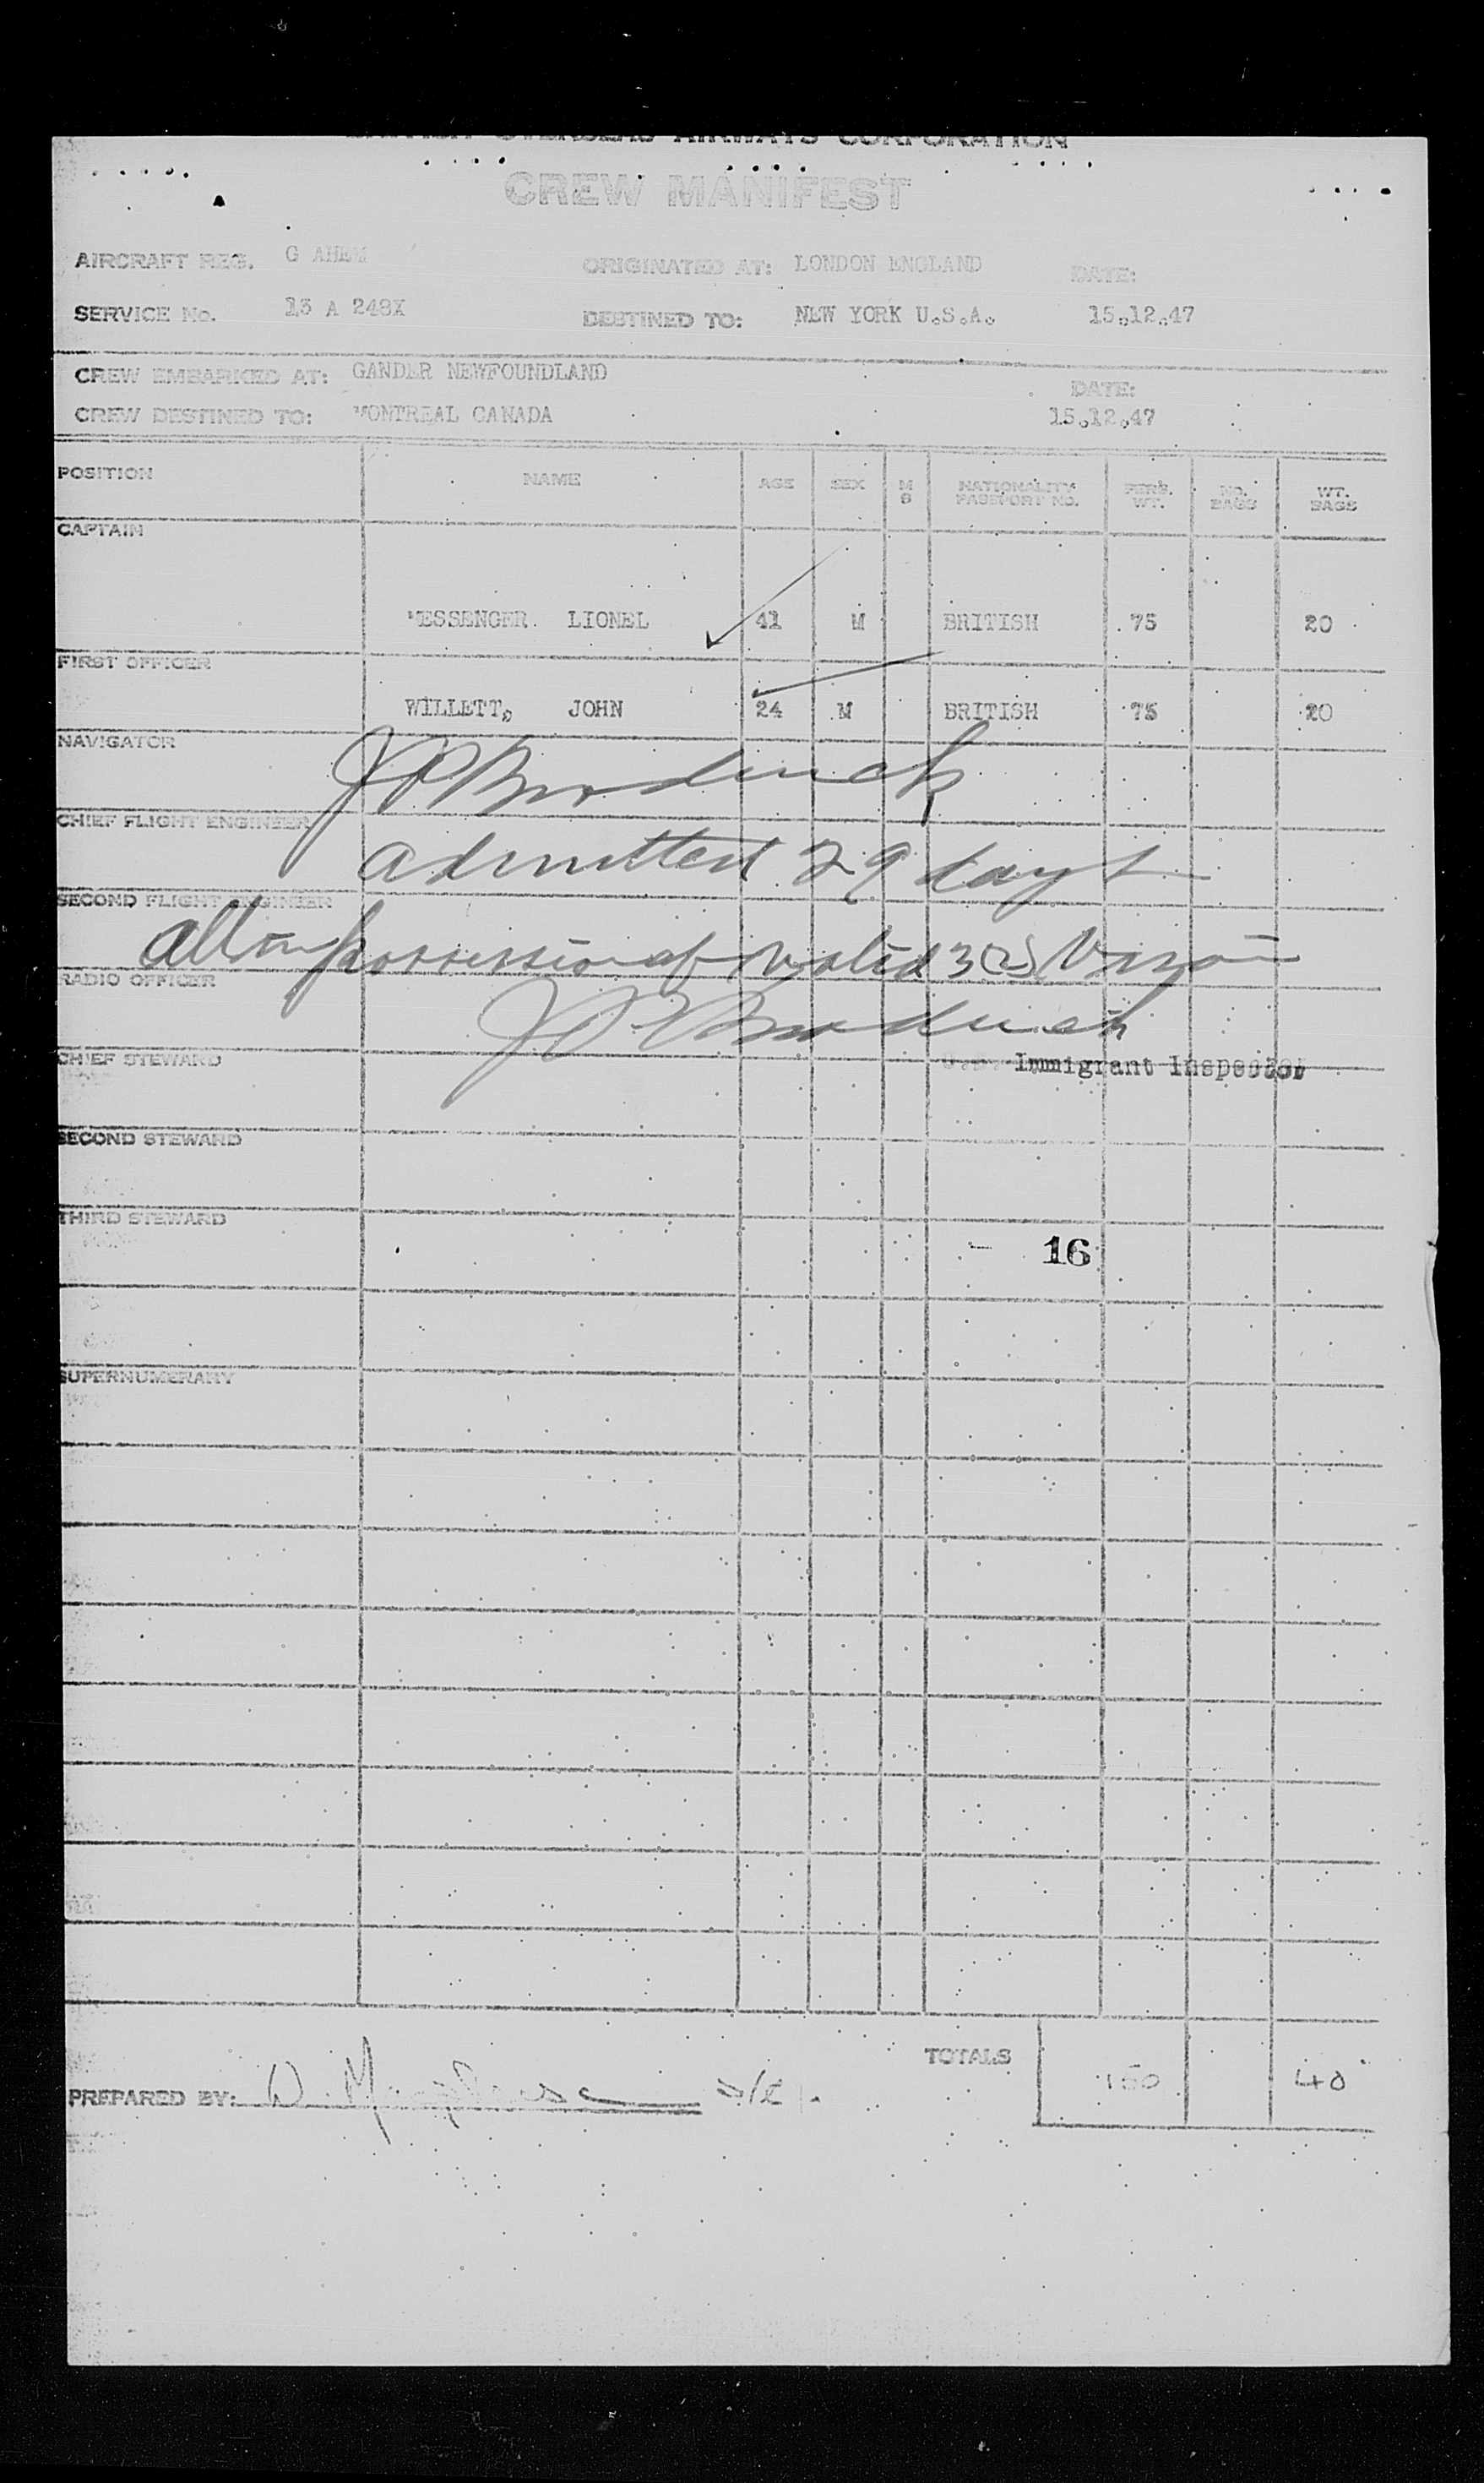 BRITISH OVERSEAS AIRWAYS CORPORATION
CREW MANIFEST
AIRCRAFT REG. G AHEM ORIGINATED AT: LONDON ENGLAND DATE:
SERVICE No. 13 A 248X DESTINED TO: NEW YORK U.S.A. 15.12.47
CREW EMBARKED AT: GANDER NEWFOUNDLAND DATE:
CREW DESTINED TO: MONTREAL CANADA 15.12.47
POSITION NAME AGE SEX M S NATIONALITY PASSPORT NO. PERS. WT. NO. BAGS WT. BAGS
CAPTAIN
MESSENGER. LIONEL 41 M BRITISH 75 20
FIRST OFFICER
WILLETT, JOHN 24 M BRITISH 75 20
NAVIGATOR
J P Broderick
CHIEF FLIGHT ENGINEER
admitted 29 days
SECOND FLIGHT ENGINEER
All in possession of valid 3(2)
RADIO OFFICER
J P Broderick
CHIEF STEWARD
U.S. Immigrant Inspector
SECOND STEWARD
THIRD STEWARD
16
SUPERNUMERARY
TOTALS 150 40
PREPARED BY: